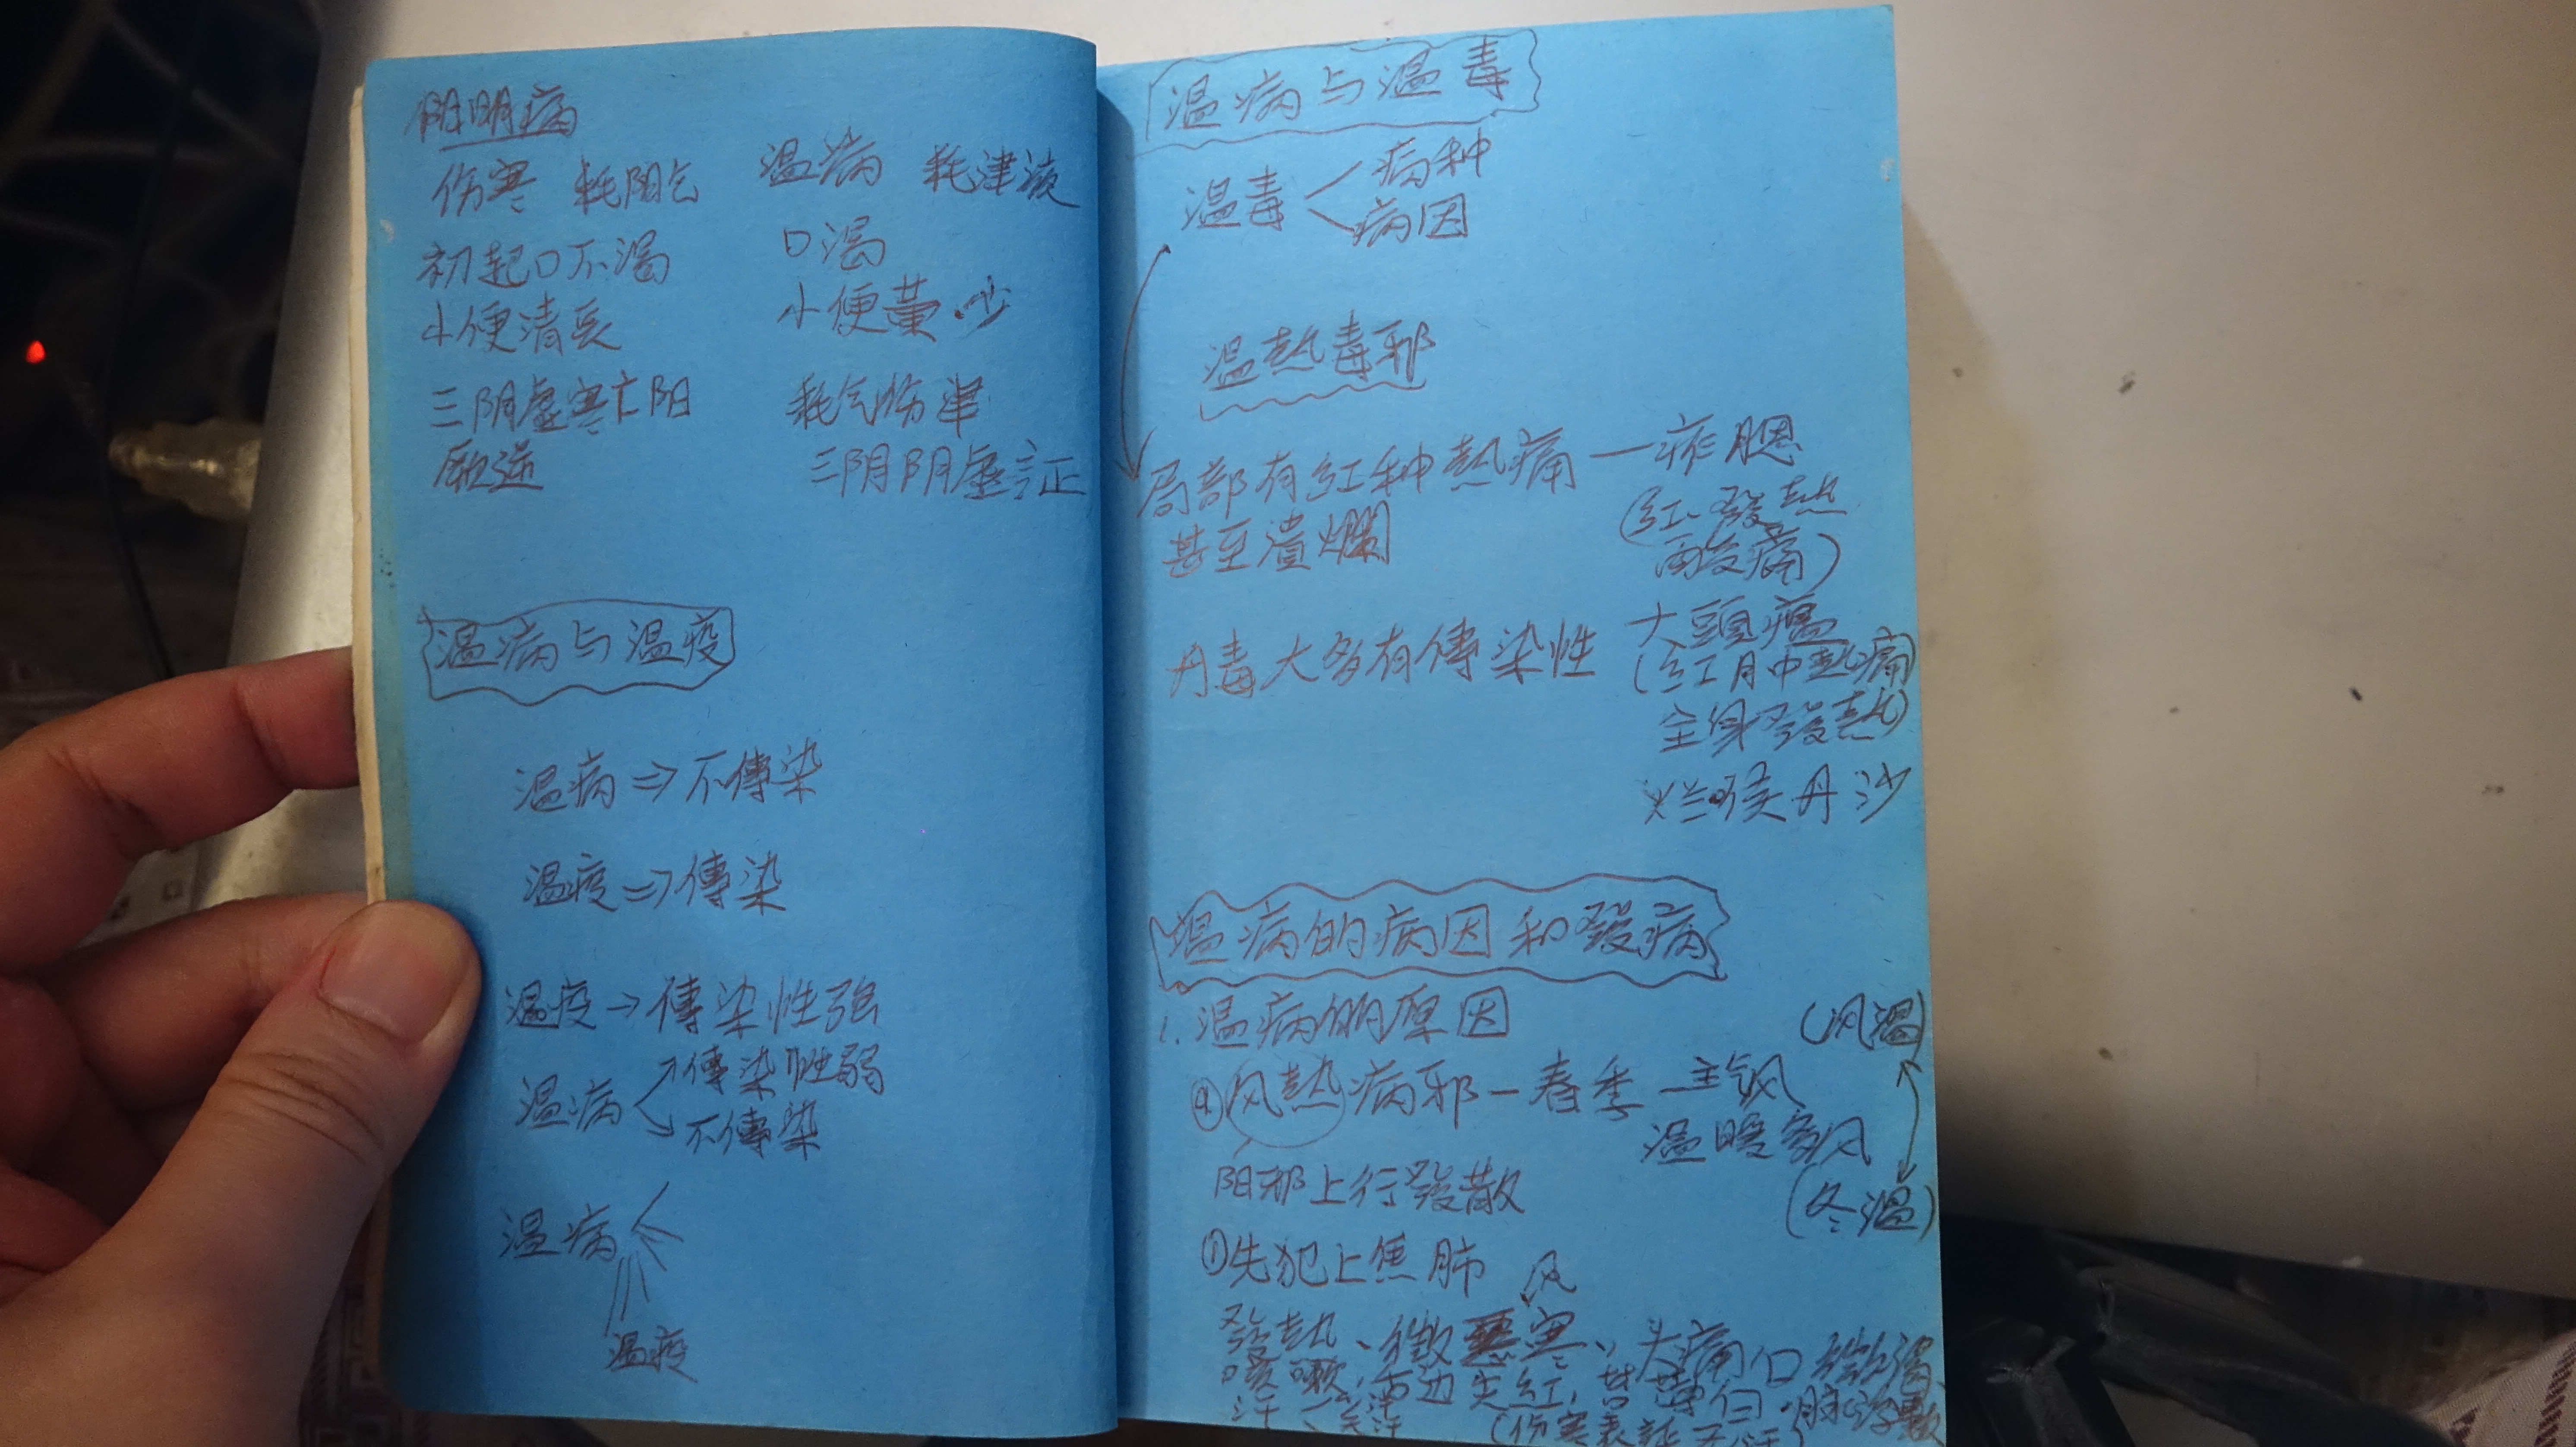 阳明病
伤寒 耗阳气 温病 耗津液
初起口不渴 口渴
小便清長 小便黄.少
三阴虚寒亡阳 耗气伤津
厥逆 三阴阴虚証
温病与温疫
温病⇒不傳染
温疫⇒傳染
温疫→傳染性强
温病 傳染性弱
不傳染
温病
温疫
温病与温毒
温毒 病种
病因
温熱毒邪
局部有红种熱痛 — 痄腮
甚至潰爛
(红、發熱
酸痛)
丹毒大多有傳染性 大頭瘟
(红肿熱痛
全身發熱)
烂喉丹沙
温病的病因和發病
1. 温病的原因 (风温)
风熱病邪 — 春季 — 主气风
温暖多风
阳邪上行發散 (冬温)
①先犯上焦肺
风
發熱、微恶寒、头痛、口微渴、
咳嗽,舌边尖红,苔薄白,脉浮數
(伤寒表証无汗)